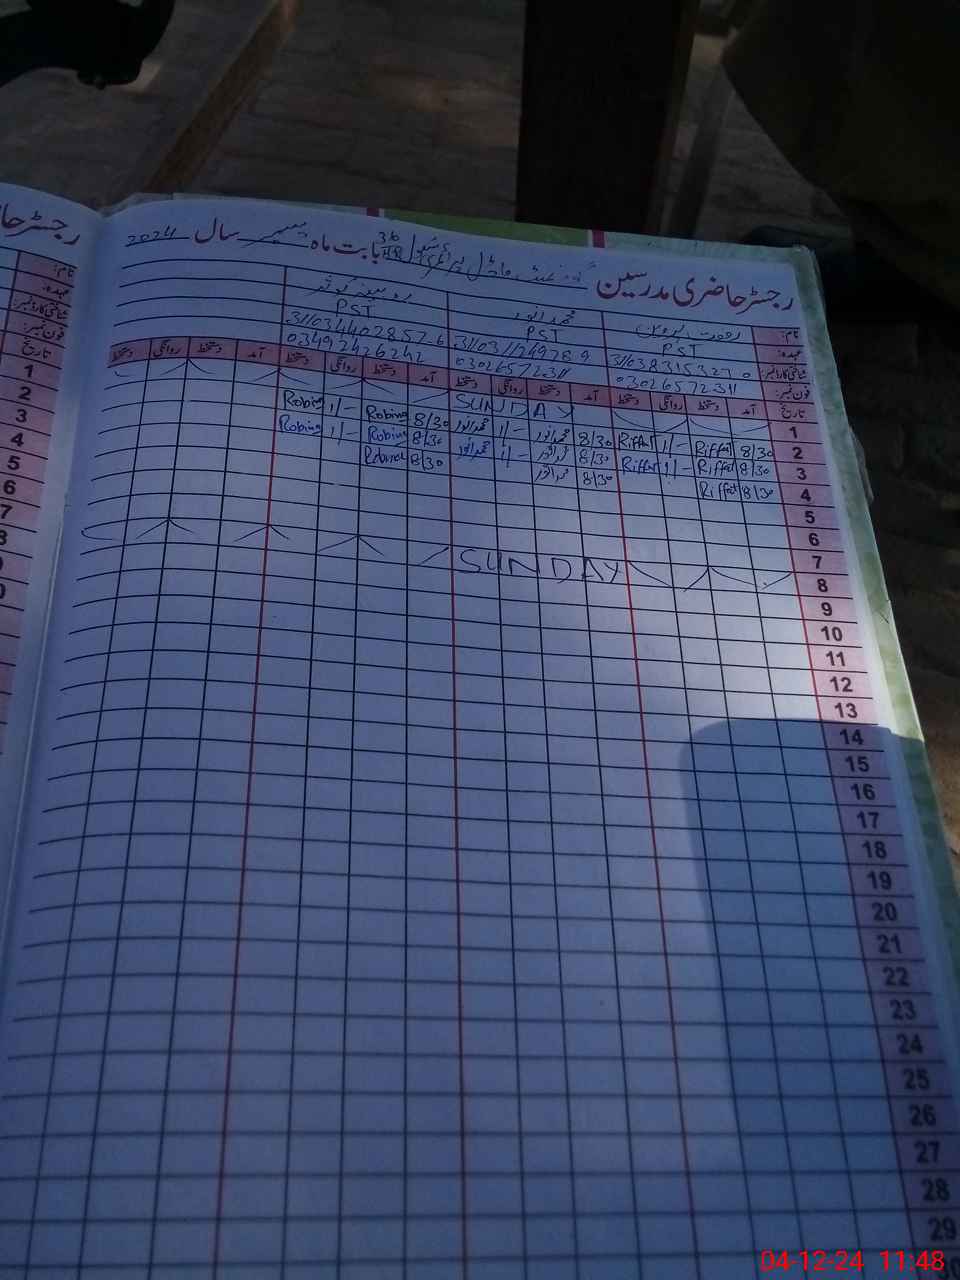 رجسٹر حاضری مدرسین گورنمنٹ ماڈل پرائمری سکول 36/HR بابت ماہ دسمبر سال 2024
رجسٹر حا
نام: رفعت پروین محمد انور روبینہ کوثر
عہدہ: PST PST PST
شناختی کارڈ نمبر: 3110344028576
فون نمبر: 03026572311 03026572311 03492426242
تاریخ آمد دستخط روانگی دستخط آمد دستخط روانگی دستخط آمد دستخط روانگی دستخط آمد دستخط روانگی دستخط
1 SUNDAY
2 8/30 Riffat 1/- Riffat 8/30 محمد انور 1/- محمد انور 8/30 Robina 1/- Robina
3 8/30 Riffat 1/- Riffat 8/30 محمد انور 1/- محمد انور 8/30 Robina 1/- Robina
4 8/30 Riffat 8/30 محمد انور 8/30 Robina
5
6
7
8 SUNDAY
9
10
11
12
13
14
15
16
17
18
19
20
21
22
23
24
25
26
27
28
29
30
نام:
عہدہ:
شناختی کارڈ نمبر:
فون نمبر:
تاریخ
1
2
3
4
5
6
7
8
04-12-24 11:48